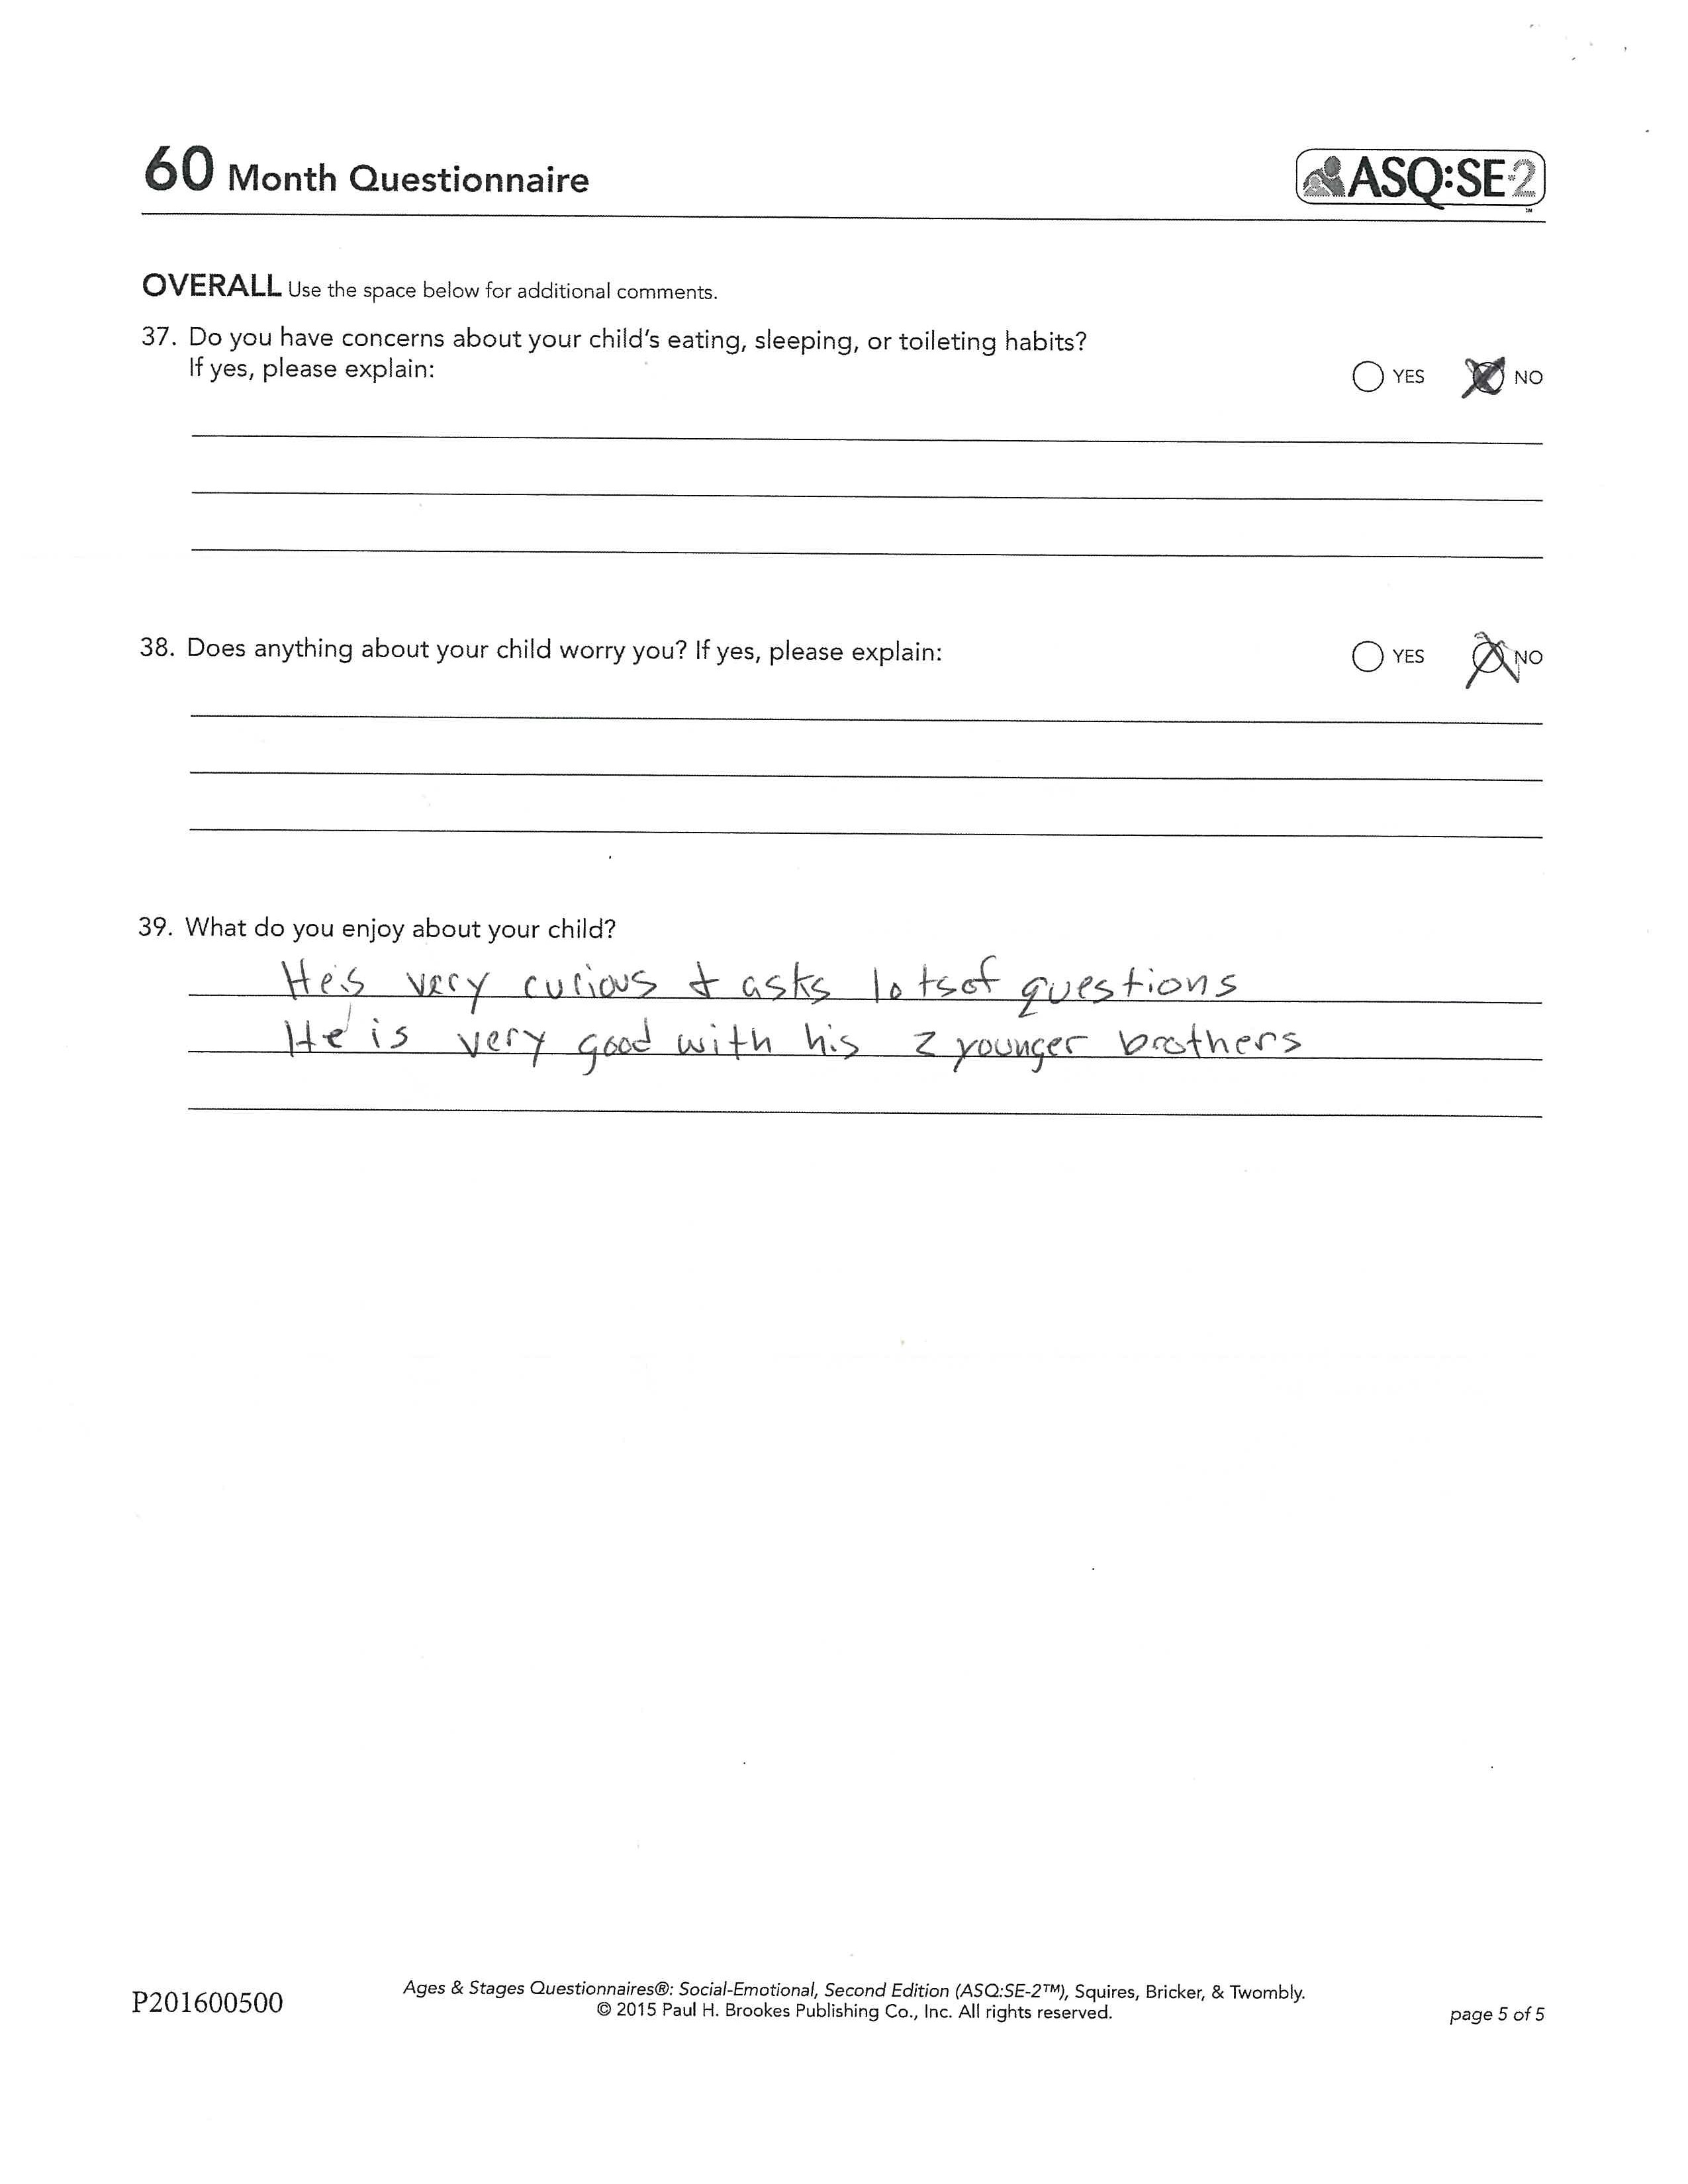 60 Month Questionnaire
ASQ:SE-2™
OVERALL Use the space below for additional comments.
37. Do you have concerns about your child's eating, sleeping, or toileting habits?
If yes, please explain:
YES NO
38. Does anything about your child worry you? If yes, please explain:
YES NO
39. What do you enjoy about your child?
He's very curious & asks lotsof questions
He is very good with his 2 younger brothers
P201600500
Ages & Stages Questionnaires®: Social-Emotional, Second Edition (ASQ:SE-2™), Squires, Bricker, & Twombly.
© 2015 Paul H. Brookes Publishing Co., Inc. All rights reserved.
page 5 of 5